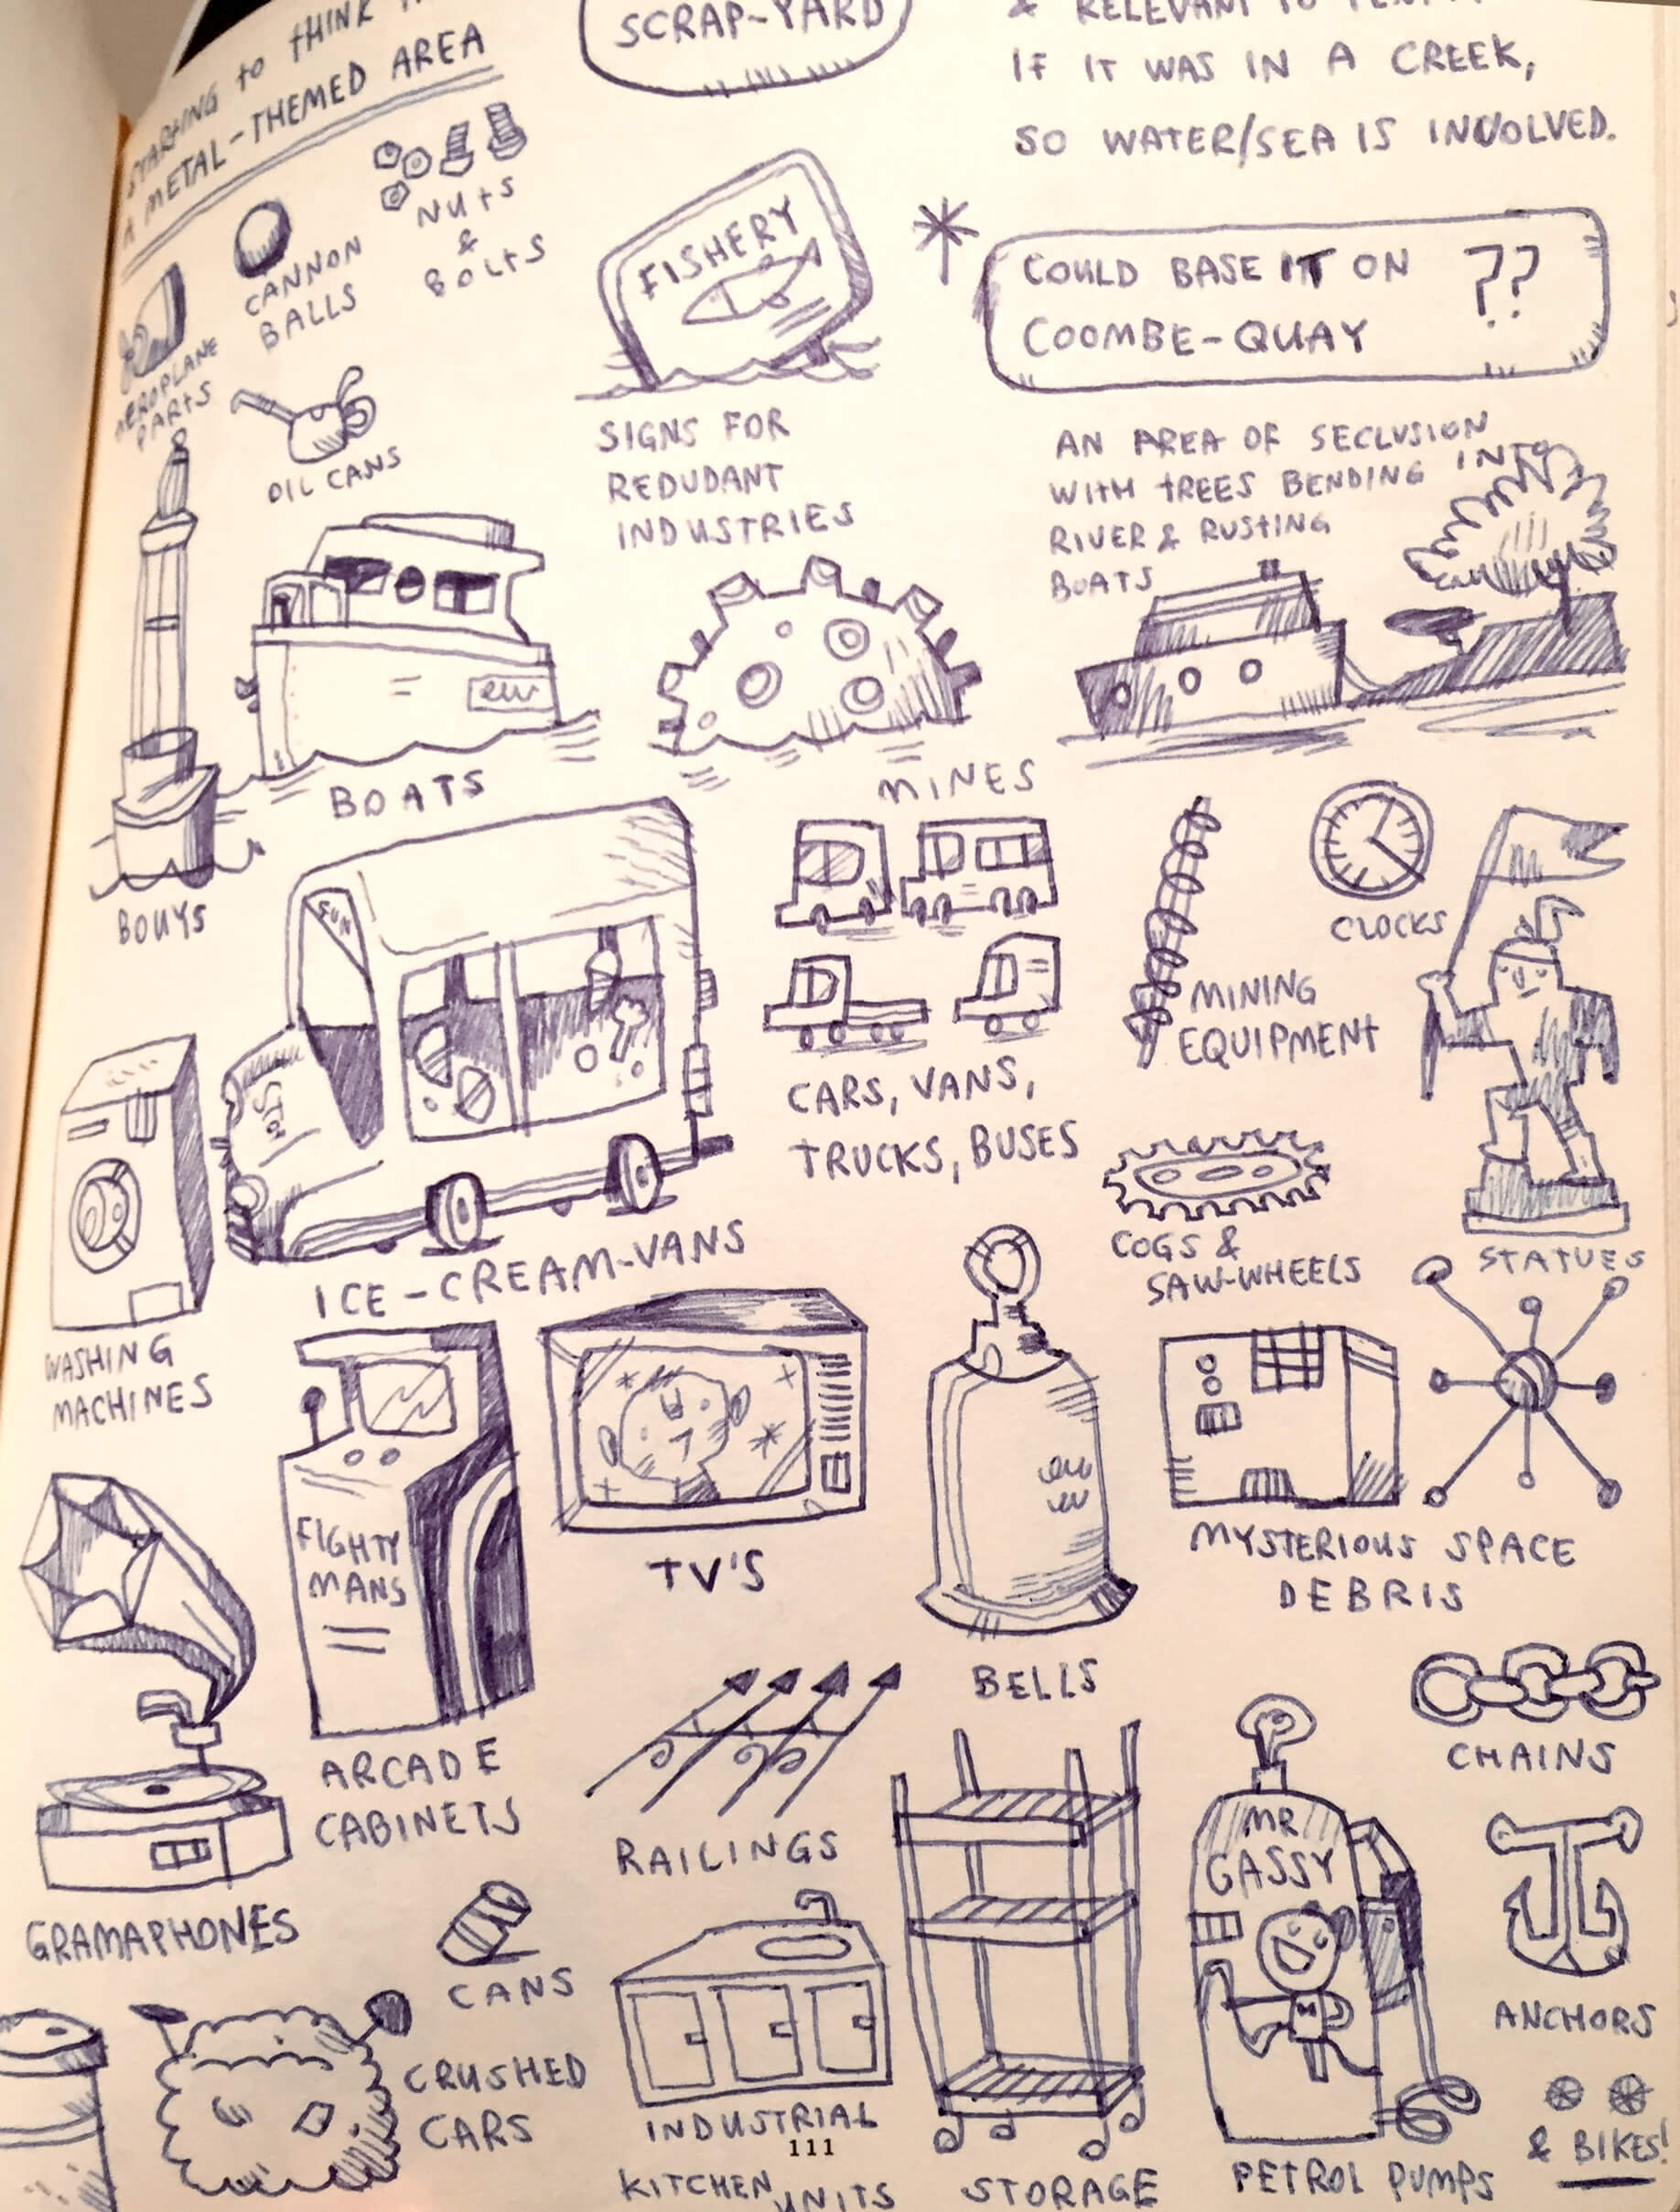 STARTING to THINK
A METAL-THEMED AREA
SCRAP-YARD
& RELEVANT TO
IF IT WAS IN A CREEK,
SO WATER/SEA IS INVOLVED.
NUTS
&
BOLTS
CANNON
BALLS
AEROPLANE
PARTS
OIL CANS
FISHERY
SIGNS FOR
REDUDANT
INDUSTRIES
COULD BASE IT ON
COOMBE-QUAY ??
AN AREA OF SECLUSION
WITH TREES BENDING INTO
RIVER & RUSTING
BOATS
BOATS
MINES
BOUYS
FUN
STOP
ICE-CREAM-VANS
CARS, VANS,
TRUCKS, BUSES
MINING
EQUIPMENT
CLOCKS
STATUES
COGS &
SAW-WHEELS
WASHING
MACHINES
FIGHTY
MANS
ARCADE
CABINETS
TV'S
BELLS
MYSTERIOUS SPACE
DEBRIS
GRAMAPHONES
RAILINGS
CHAINS
MR
GASSY
M
ANCHORS
CANS
CRUSHED
CARS
INDUSTRIAL
KITCHEN UNITS
111
STORAGE
PETROL PUMPS
& BIKES!